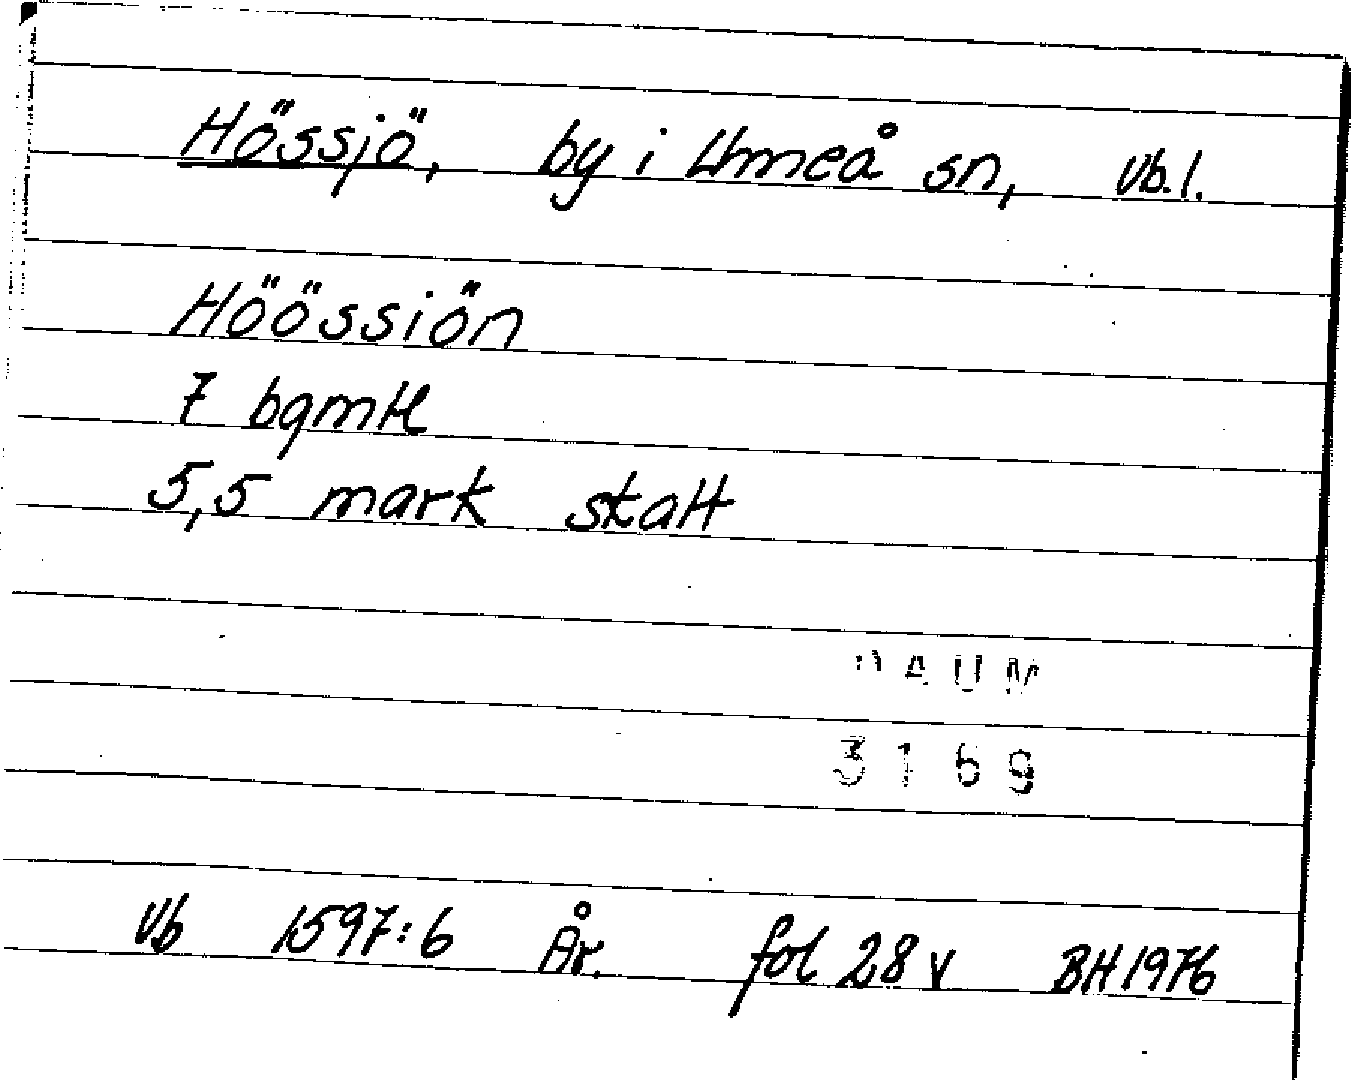 Hössjö, by i Umeå sn, Vb. l.
Höössiön
7 bqmtl
5,5 mark skatt
DAUM
3169
Vb 1597:6 År. fol 28 v BH 1976